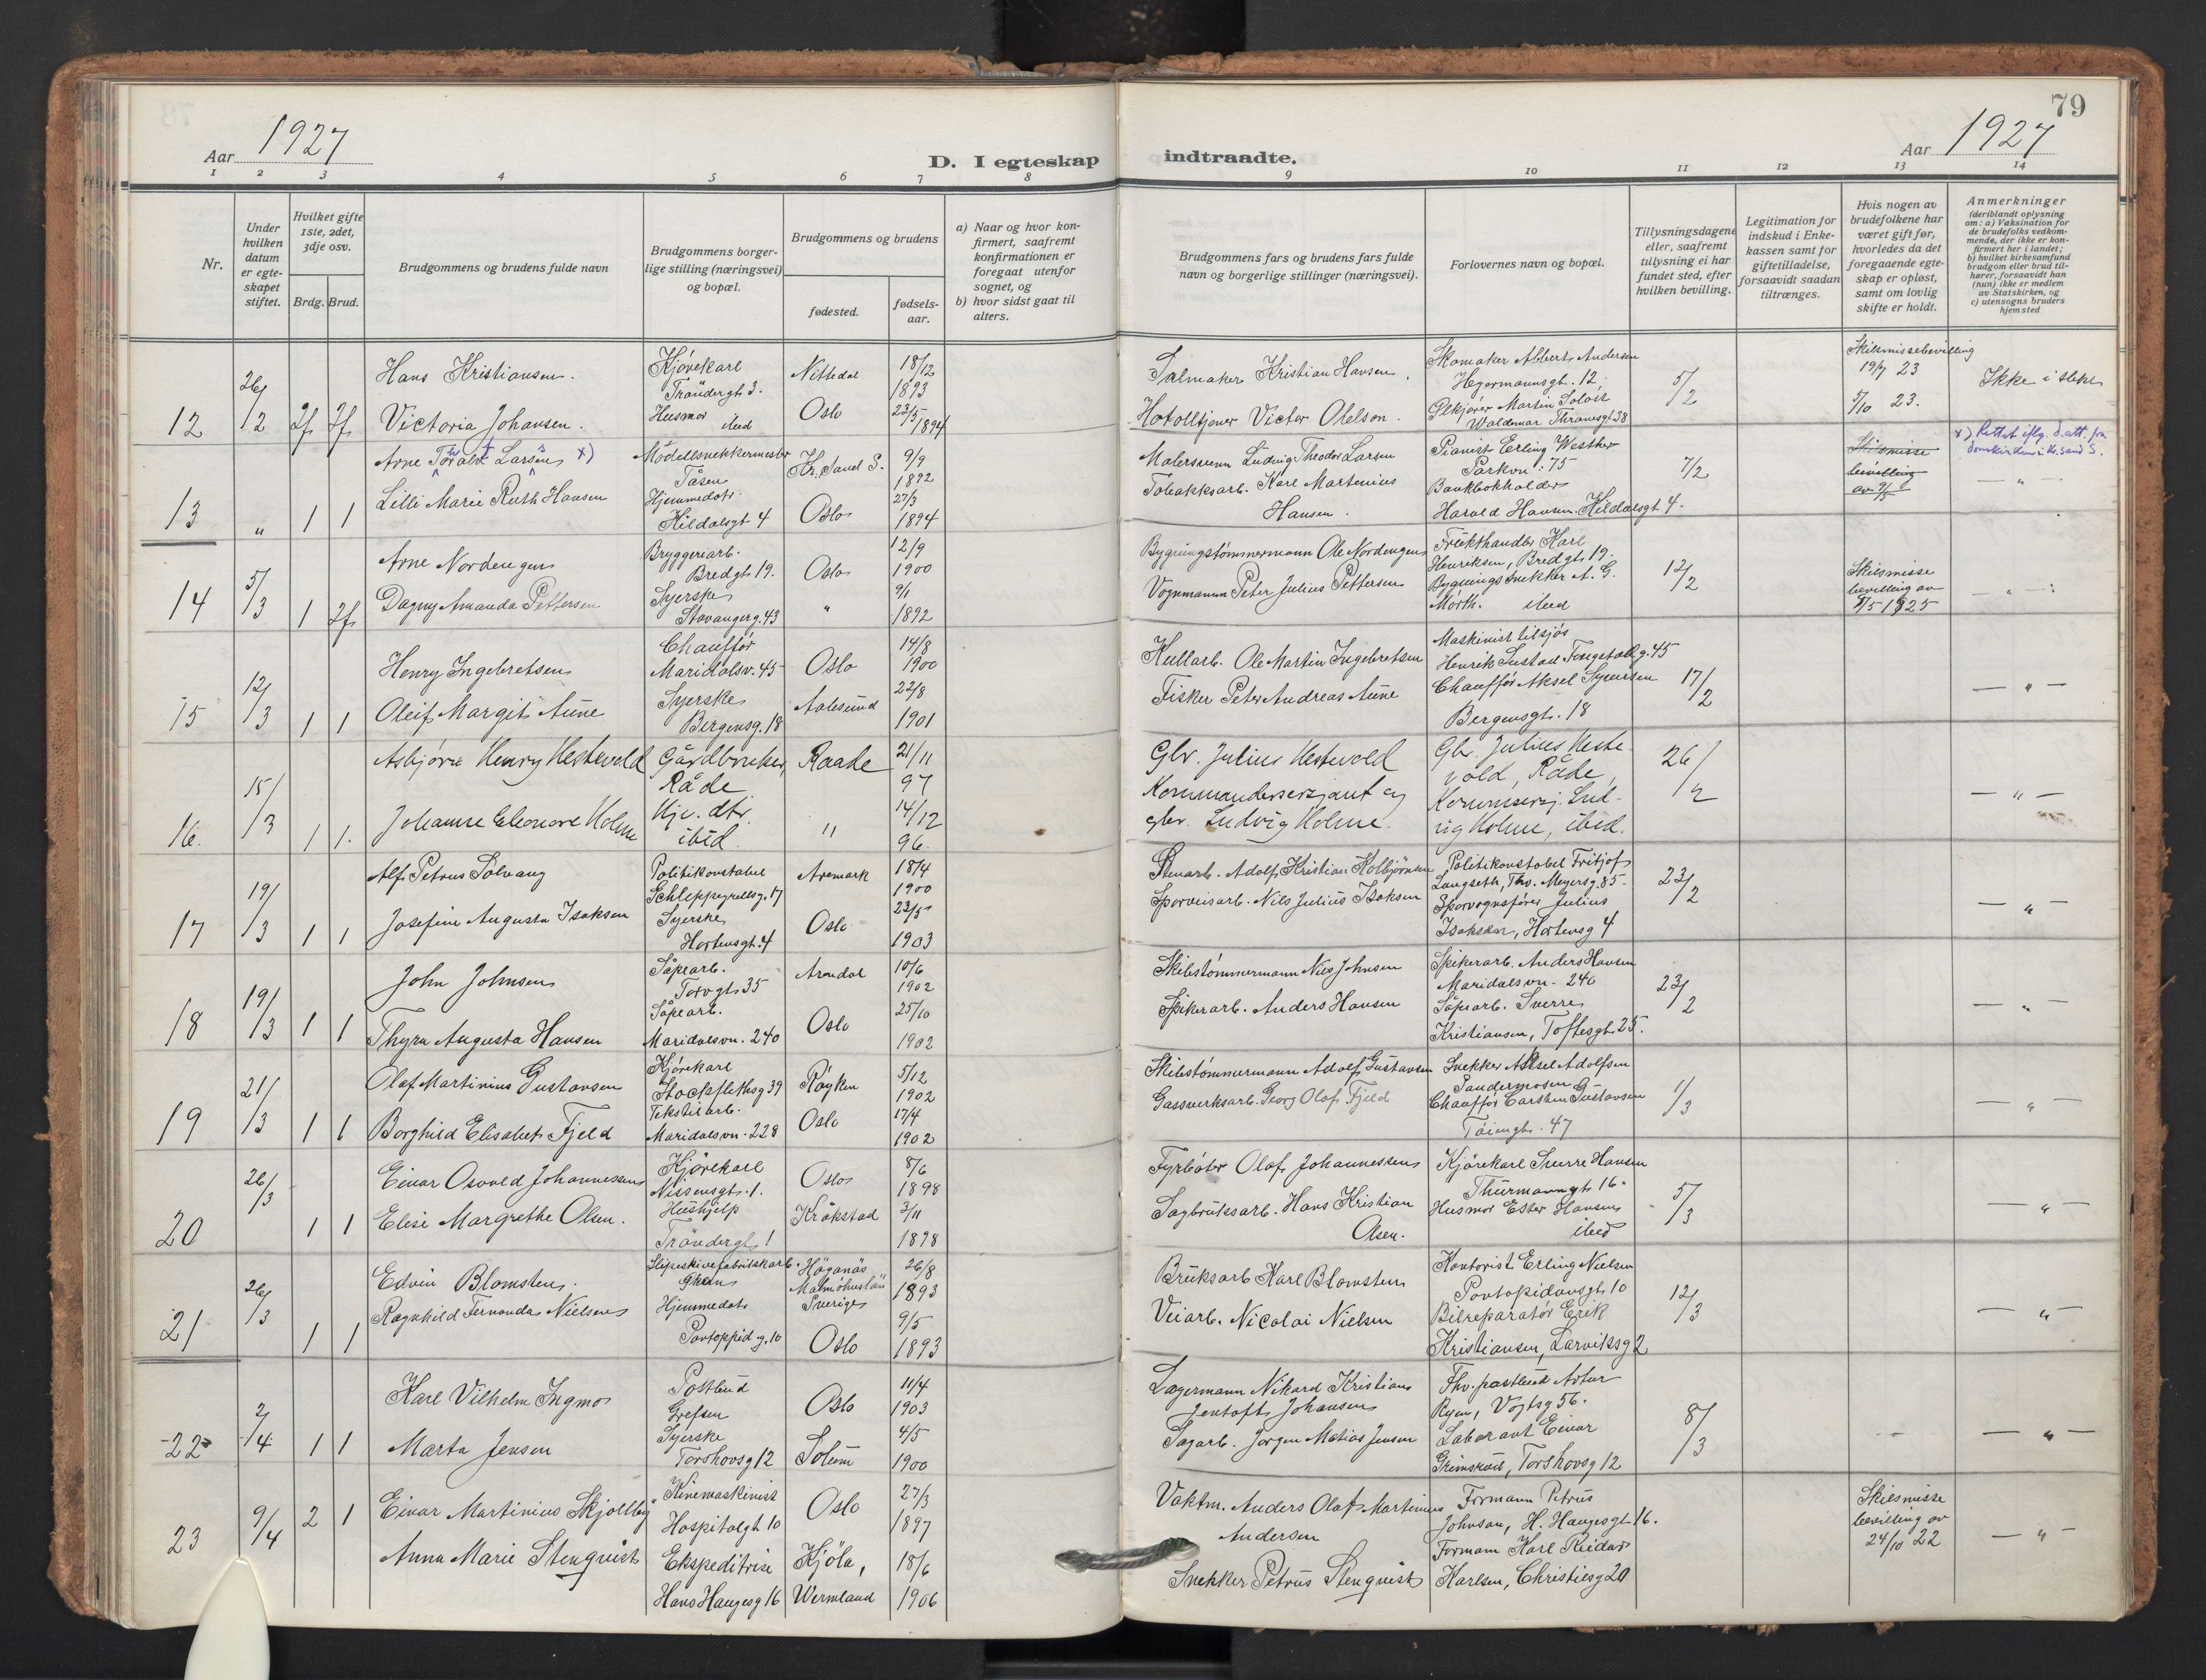 79
Aar 1927
D. I egteskap indtraadte.
Aar 1927
1 2 3 4 5 6 7 8 9 10 11 12 13 14
Nr.
Under hvilken datum er egte-skapet stiftet.
Hvilket gifte 1ste, 2det, 3dje osv.
Brdg. Brud.
Brudgommens og brudens fulde navn
Brudgommens borger-lige stilling (næringsvei) og bopæl.
Brudgommens og brudens
fødested.
fødsels-aar.
a) Naar og hvor kon-firmert, saafremt konfirmationen er foregaat utenfor sognet, og
b) hvor sidst gaat til alters.
Brudgommens fars og brudens fars fulde navn og borgerlige stillinger (næringsvei).
Forlovernes navn og bopæl.
Tillysningsdagene eller, saafremt tillysning ei har fundet sted, efter hvilken bevilling.
Legitimation for indskud i Enke-kassen samt for giftetilladelse, forsaavidt saadan tiltrænges.
Hvis nogen av brudefolkene har været gift før, hvorledes da det foregaaende egte-skap er opløst, samt om lovlig skifte er holdt.
Anmerkninger
(deriblandt oplysning om: a) Vaksination for de brudefolks vedkom-mende, der ikke er kon-firmert her i landet; b) hvilket kirkesamfund brudgom eller brud til-hører, forsaavidt han (hun) ikke er medlem av Statskirken, og c) utensogns bruders hjemsted
12 26/2 2f 2f
Hans Kristiansen. Kjørekarl Trøndergt 3. Nittedal 18/12 1893
Salmaker Kristian Hansen. Skomaker Albert Andersen Hegermannsgt. 12,
Victoria Johansen. Husmor ibid Oslo 23/5 1894
Hotelltjener Victor Olelson. Waldemar Thranesgt 38
5/2
Skilsmissebevilling 19/7 23 5/10 23.
Ikke i slekt
13 " 1 1
Arne Larsen x) Modellsnekkermester Tåsen Kr.sand S. 9/9 1892
Malersvenn Ludvig Theodor Larsen Pianist Erling Westher Parkvn. 75
Lilli Marie Ruth Hansen Hjemmedatr. Kildalsgt 4 Oslo 27/3 1894
Tobakksarb. Karl Martenius Hansen. Bankbokholder Harald Hansen. Kildalsgt 4.
7/2
Skilsmisse bevilling av 9/5
x) Rettet iflg. d.att. fra domkirken i Kr.sand S.
— " —
14 5/3 1 2f
Arne Nordengen Bryggeriarb. Bredgt 19. Oslo 12/9 1900
Bygningstømmermann Ole Nordengen Frukthandler Karl Henriksen, Bredgt 19.
Dagny Amanda Pettersen Syerske Stavangerg. 43 " 9/1 1892
Vognmann Peter Julius Pettersen Bygningssnekker A. G. Morth. ibid
12/2
Skilsmisse bevilling av 8/5 1925
— " —
15 12/3 1 1
Henry Ingebretsen Chauffør Maridalsv. 45 Oslo 14/8 1900
Kullarb. Ole Martin Ingebretsen Maskinist tilsjøs Henrik Sustad g. 45
Oleif Margit Aune Syerske Bergensg. 18 Aalesund 22/8 1901
Fisker Peter Andreas Aune Chauffør Aksel Syversen Bergensgt. 18
17/2
— " —
16. 15/3 1 1.
Asbjørn Henry Hestevold Gårdbruker, Råde Raade 21/11 97
Gbr. Julius Hestevold Gbr. Julius Hestevold, Råde,
Johanne Eleonore Holme Hjv. dtr. ibid. " 14/12 96.
Kommandersersjant og gbr. Ludvig Holme. Kommsersj. Ludvig Holme, ibid.
26/2
— " —
17 19/3 1 1
Alf Petrus Solvang Politikonstabel Schleppegrellsg. 17 Aremark 18/4 1900
Stenarb. Adolf Kristian Kolbjørnsen Politikonstabel Fritjof Langseth, Thv. Meyersg. 85.
Josefine Augusta Isaksen Syerske Hortensgt. 4 Oslo 23/5 1903
Sporveisarb. Nils Julius Isaksen Sporvognsfører Julius Isaksen, Hortensg 4
23/2
— " —
18 19/3 1 1
John Johnsen Såpearb. Torvgt 35 Arendal 10/6 1902
Skibstømmermann Nils Johnsen Spikerarb. Anders Hansen Maridalsvn. 240
Thyra Augusta Hansen Såpearb. Maridalsvn. 240 Oslo 25/10 1902
Spikerarb. Anders Hansen Såpearb. Sverre Kristiansen, Toftesgt 25.
23/2
— " —
19 21/3 1 1
Olaf Martinius Gustavsen Kjørekarl Stockflethsg 39 Røyken 5/12 1902
Skibstømmermann Adolf Gustavsen Snekker Aksel Adolfsen Sandermosen
Borghild Elisabet Fjeld Tekstilarb. Maridalsvn. 228 Oslo 17/4 1902
Gassverksarb. Georg Olaf Fjeld Chauffør Carsten Gustavsen Tøiengt. 47
1/3
— " —
20 26/3 1 1
Einar Osvald Johannessen Kjørekarl Nissensgt. 1. Oslo 8/6 1898
Fyrbøter Olaf Johannessen Kjørekarl Sverre Hansen Thurmanngt 16.
Elise Margrethe Olsen. Hushjelp Trøndergt 1 Kråkstad 3/11 1898
Sagbruksarb. Hans Kristian Olsen. Husmor Ester Hansen ibid
5/3
— " —
21 26/3 1 1
Edvin Blomsten. Slipeskivefabrikkarb. Høganäs Malmöhuslän Sverige 26/8 1893
Bruksarb Karl Blomsten Kontorist Erling Nielsen Pontopidansgt 10
Ragnhild Fernanda Nielsen Hjemmedatr Pontoppid g. 10 Oslo 9/5 1893
Veiarb. Nicolai Nielsen Bilreparatør Erik Kristiansen, Larviksg 2
12/3
— " —
-22- 2/4 1 1
Karl Vilhelm Ingmo Postbud Grefsen Oslo 11/4 1903
Lagermann Nikard Kristian Jentoft Johansen Fhv. postbud Artur Ryen, Vogtsg 56.
Marta Jensen Syerske Torshovsg 12 Solum 4/5 1900
Sagarb. Jørgen Matias Jensen Laborant Einar Torshovsg 12
8/3
— " —
23 9/4 2 1
Einar Martinius Skjollby Kinomaskinist Hospitalgt 10 Oslo 27/3 1897
Vaktm. Anders Olaf Martinius Andersen Formann Petrus Johnsen, H. Haugesgt 16.
Anna Marie Stenqvist Ekspeditrise Hans Haugesg 16 Kjøla, Wermland 18/6 1906
Snekker Petrus Stenqvist Formann Karl Reidar Karlsen, Christiesg 20
Skilsmisse bevilling av 24/10 22
— " —